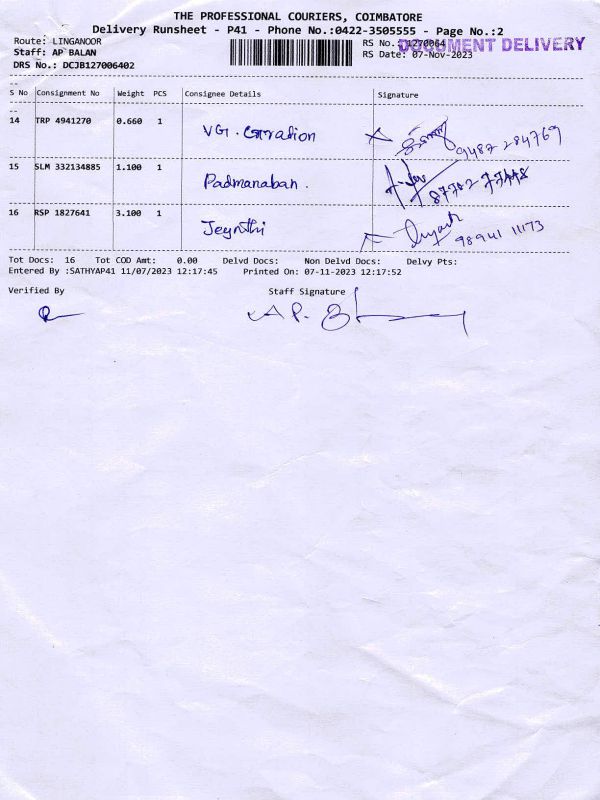 THE PROFESSIONAL COURIERS, COIMBATORE
Delivery Runsheet - P41 - Phone No.:0422-3505555 - Page No.:2
Route: LINGANOOR RS No. 1270064 DOCUMENT DELIVERY
Staff: AP BALAN RS Date: 07-Nov-2023
DRS No.: DCJB127006402
S No Consignment No Weight PCS Consignee Details Signature
14 TRP 4941270 0.660 1 VG. 9487 284769
15 SLM 332134885 1.100 1 Padmanaban.
16 RSP 1827641 3.100 1 Jeynthi 98941 11173
Tot Docs: 16 Tot COD Amt: 0.00 Delvd Docs: Non Delvd Docs: Delvy Pts:
Entered By :SATHYAP41 11/07/2023 12:17:45 Printed On: 07-11-2023 12:17:52
Verified By Staff Signature
AP. B